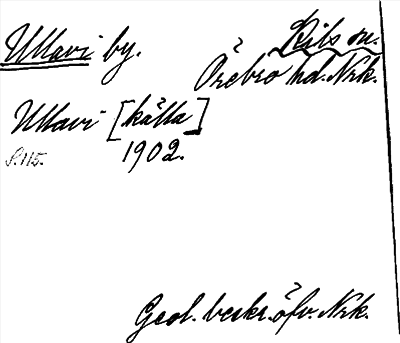 Ullavi by. Kils sn.
Örebro hd. Nrk.
Ullavi [källa]
S. 115. 1902.
Geol. beskr. öfv. Nrk.